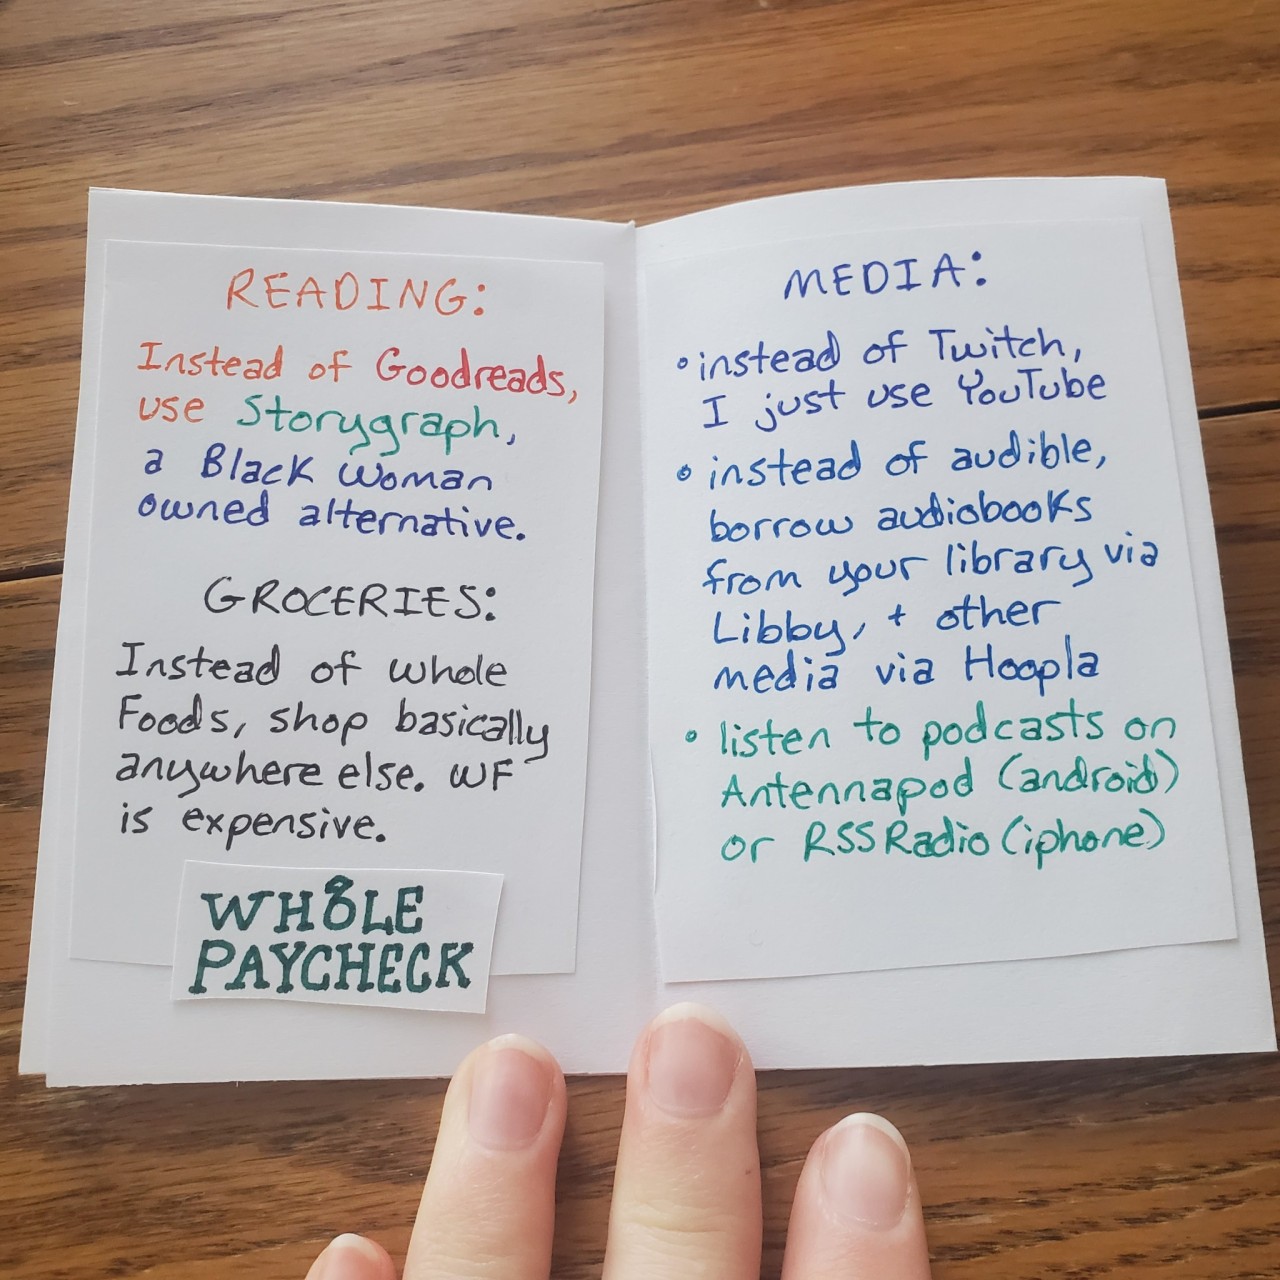 READING:
Instead of Goodreads,
use Storygraph,
a Black Woman
owned alternative.
GROCERIES:
Instead of whole
Foods, shop basically
anywhere else. WF
is expensive.
WHOLE
PAYCHECK
MEDIA:
• instead of Twitch,
I just use YouTube
• instead of audible,
borrow audiobooks
from your library via
Libby, + other
media via Hoopla
• listen to podcasts on
Antennapod (android)
or RSSRadio (iphone)